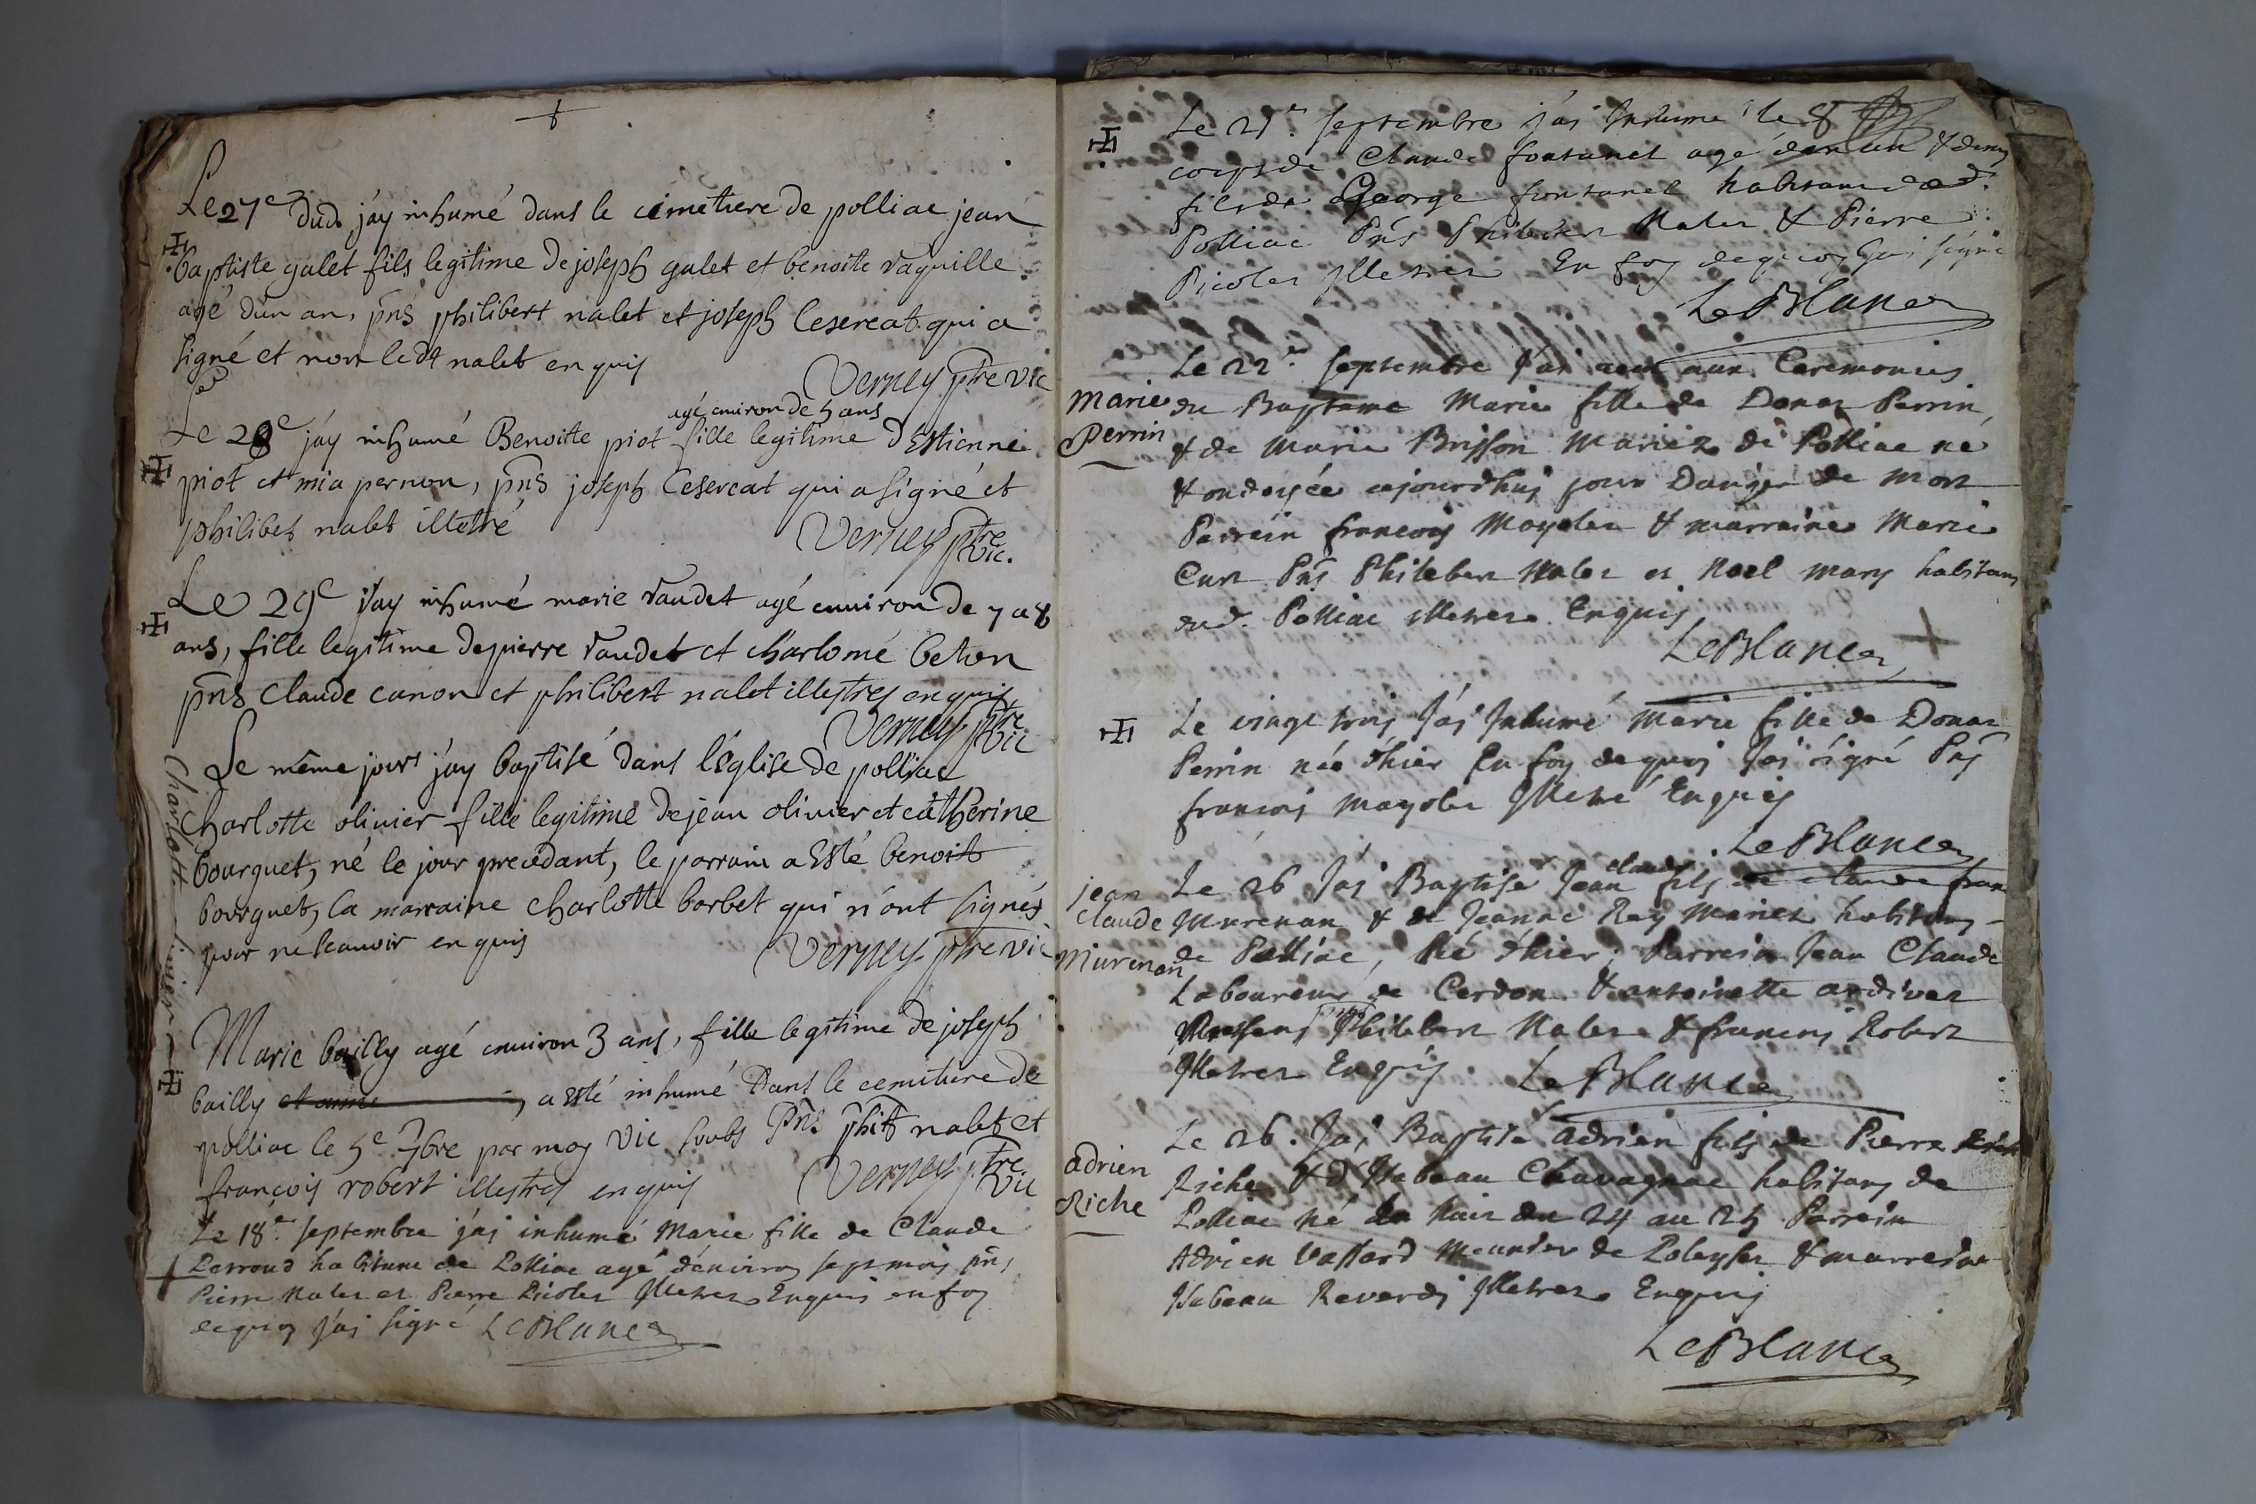 Le 27e dud jáy inhumé dans le cimetiere de polliac jean
baptiste galet fils legitime de joseph galet et benoite raquille
agé dun an, pns philibert nalet et joseph Cesercat qui a
signé et non ledt nalet en quis
Verney ptre vic
agé environ de 5 ans
Le 28e jáy inhumé Benoitte piot fille legitime d'Estienne
piot et mia pernon, pns joseph Cesercat qui a signé et
philibet nalet illetré
Verney ptre vic.
Le 29e j'ay inhumé marie vaudet agé environ de 7 a 8
ans, fille legitime de pierre vaudet et charlomé beton
pns claude canon et philibert nalet illestres enquis
Verney ptre vic
Le même jours jáy baptisé dans léglise de polliac
Charlotte olivier fille legitime de jean olivier et catherine
bourguet, né le jour precedant, le parrain a esté benoit
bourguet, la marraine charlotte barbet qui n'ont signés
pour ne scauoir en quis
Verney ptre vic
Charlotte
Marie bailly agé environ 3 ans, fille legitime de joseph
bailly et anne, a esté inhumé Dans le cemitiere de
polliac le 5e 7bre par moy vic soubs pns. phit nalet et
françois robert illestres enquis
Verney ptre vic
Le 18e septembre j'ai inhumé Marie fille de Claude
Perroud habitant de Polliac agé d'environ sept mois pns
Pierre Nalet et Pierre Picolet Illetrez Enquis en foy
dequoy j'ai signé LeBlanc
Le 21e septembre j'ai Inhumé le 8
corps de Claude fontanel agé d'un an & demy
fils de George fontanel habitant dud.
Polliac Pns Philibert Nalet & Pierre
Picolet Illetrez En foy dequoy j'ai signé
LeBlanc
Le 22e septembre j'ai aux Ceremonies
Marie Perrin
du Baptame Marie fille de Donat Perrin
& de Marie Brisson Mariez de Polliac né
& ondoyée ajourdhuj pour Danger de mort
Parrein francois Mayolet & marraine Marie
Curt Pns Philibert Nalet et Noel Mary habitans
dud. Polliac illetrez Enquis
LeBlanc
Le vingt trois J'ai Inhumé Marie fille de Donat
Perrin née d'hier En foy dequoi J'ai signé Pns
francois Mayolet Illetré Enquis
LeBlanc
jean claude Murenan
Le 26 J'ai Baptisé Jean claude fils de claude fran
Murenan & de Jeanne Rey Mariez habitans
de Polliac, Né d'hier; Parrein Jean Claude
Laboureur de Cerdon & antoinette ardivet
Presens Philibert Nalet & francois Robert
Illetrez Enquis LeBlanc
adrien Riche
Le 26. J'ai Baptisé adrien fils de Pierre
Riche & d'Isabeau Chavagnac habitans de
Polliac Né la Nuit du 24 au 25 Parrein
Adrien Vassard Meunier de Poleyser & marreine
Isabeau Reverdi Illetrez Enquis
LeBlanc